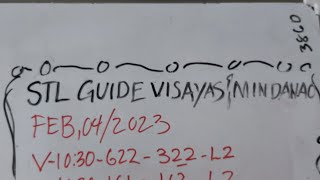 3860
STL GUIDE VISAYAS/MINDANAO
FEB,04/2023
V-10:30-622-322-L2